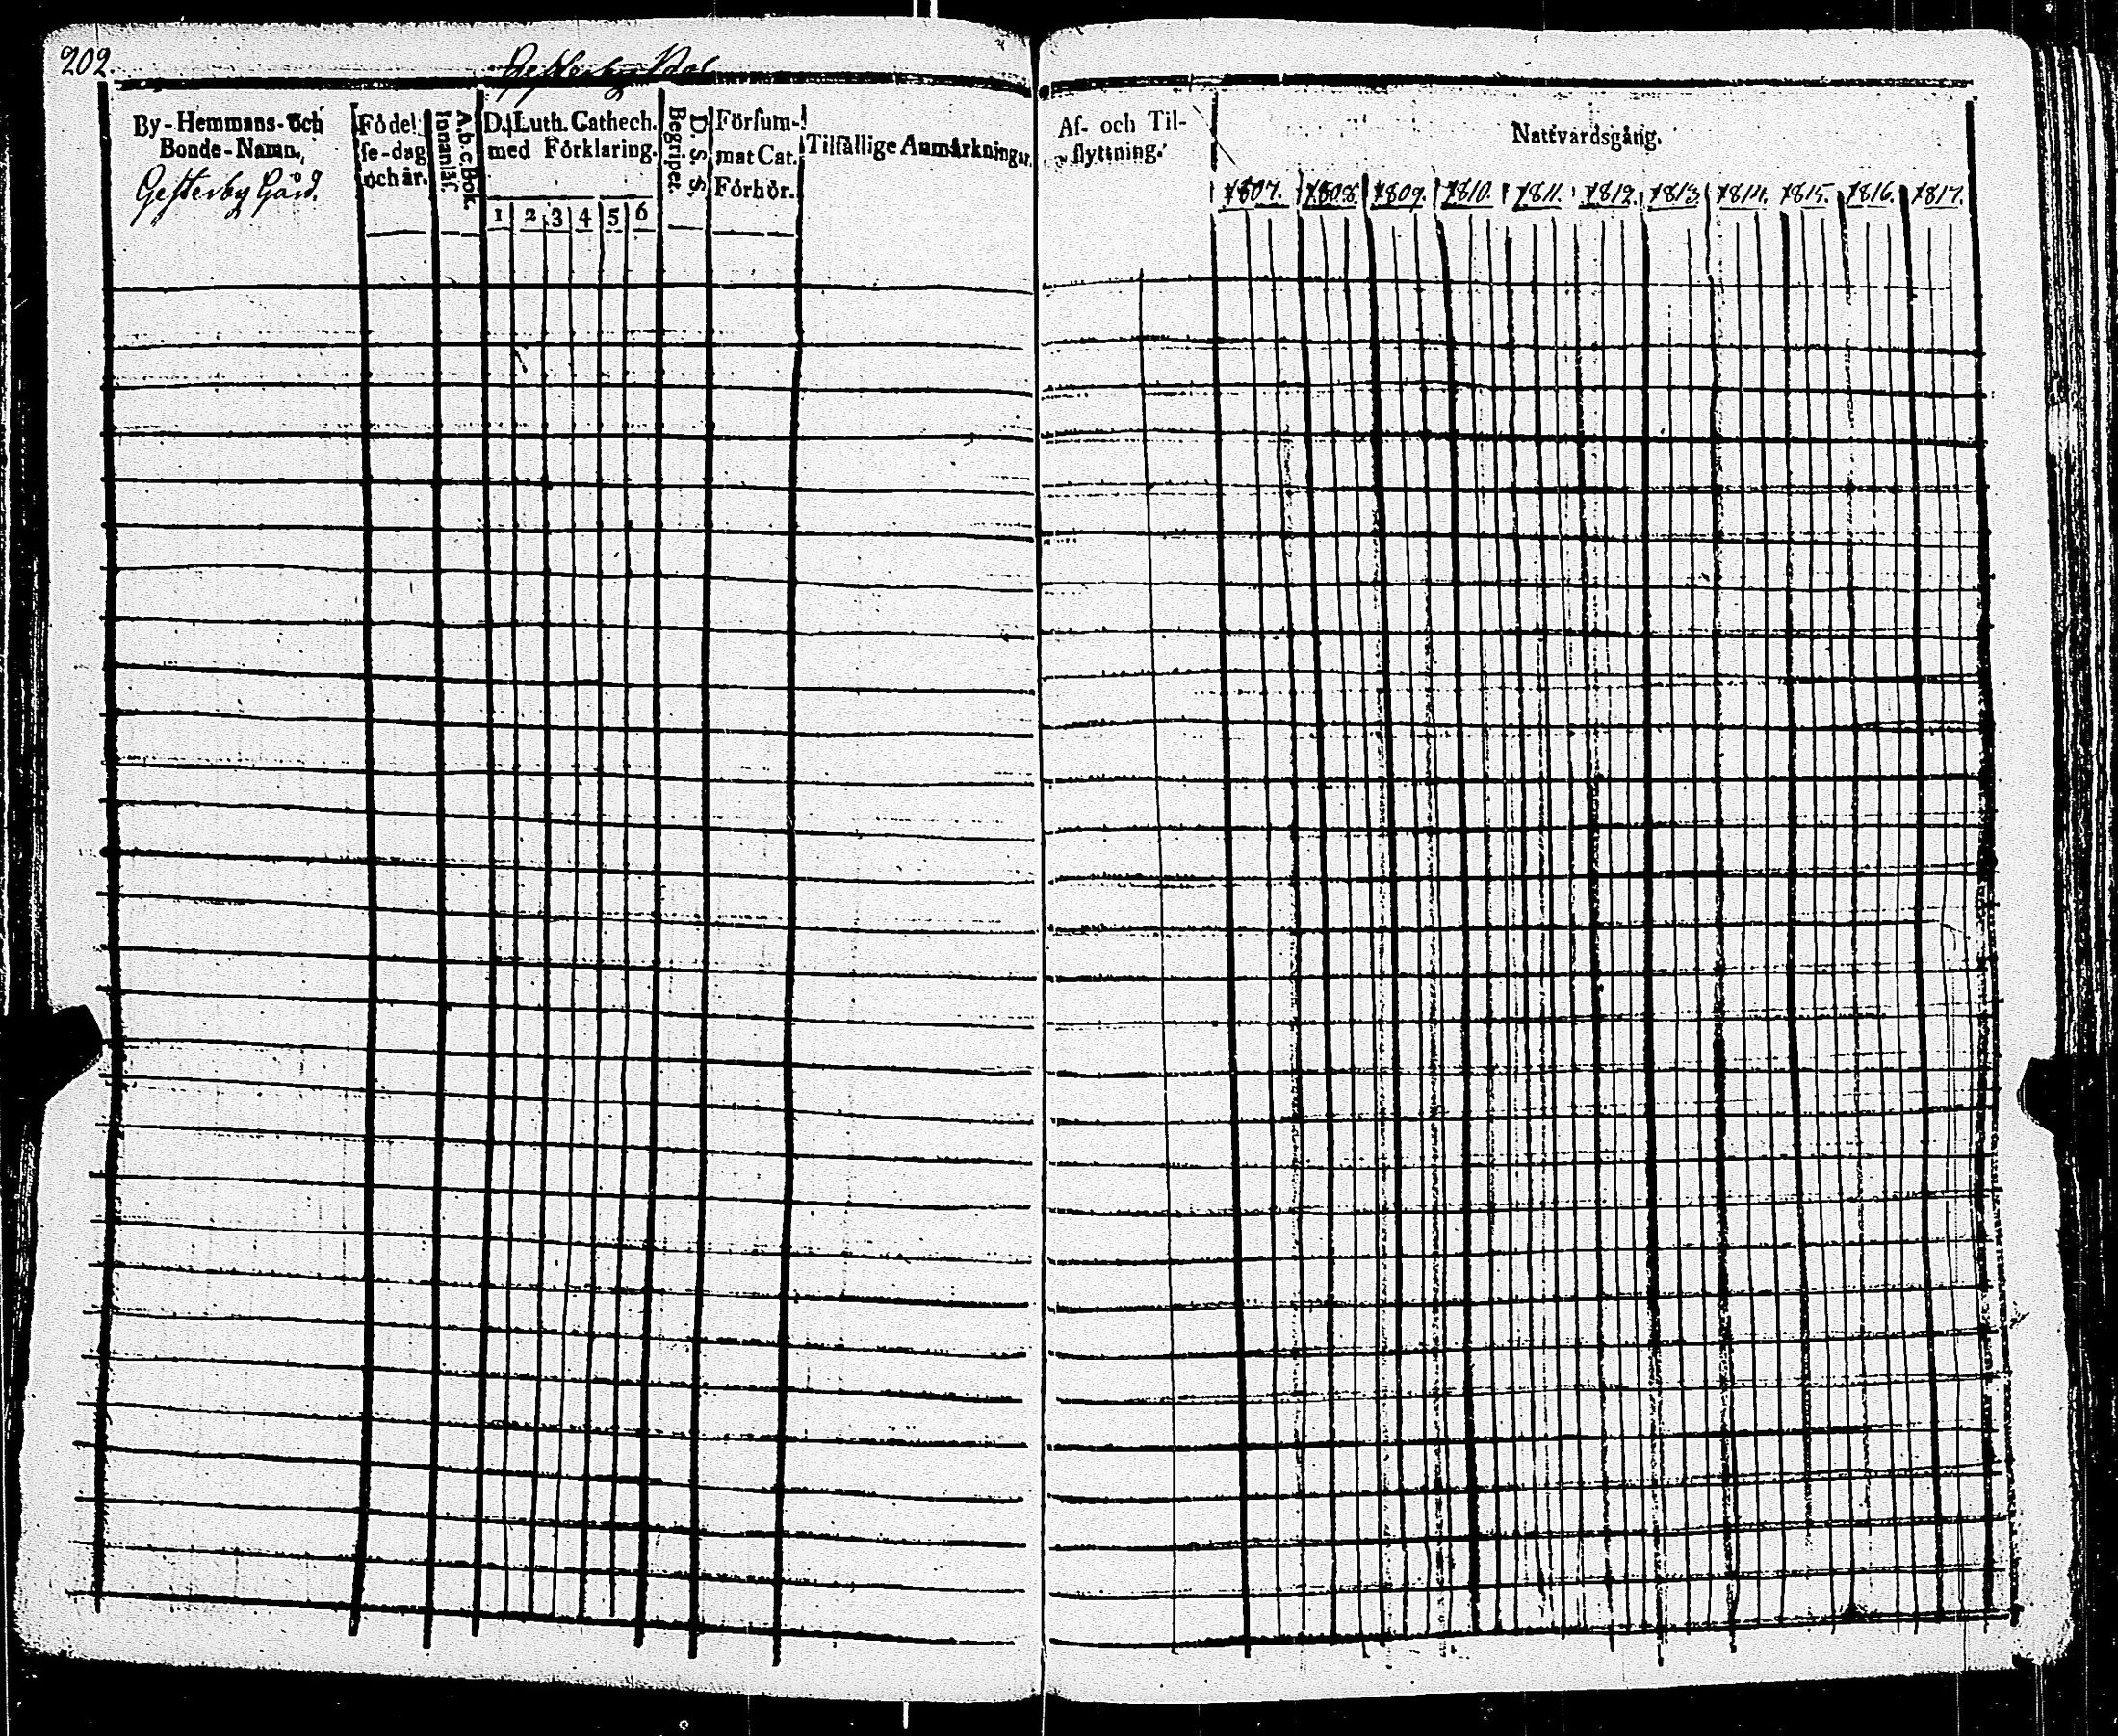 202.
Gesterby
By-Hemmans- och
Bonde-Namn.
Gesterby Gård.
Födel-
se-dag
och år.
A.b.c. Bok.
Innanläſ.
D. Luth. Cathech.
med Förklaring.
1 2 3 4 5 6
D. S. S.
Begriper.
Förſum-
mat Cat.
Förhör.
Tilfällige Anmärkningar.
Af- och Til-
flyttning.
Nattvardsgång.
1807. 1808. 1809. 1810. 1811. 1812. 1813. 1814. 1815. 1816. 1817.